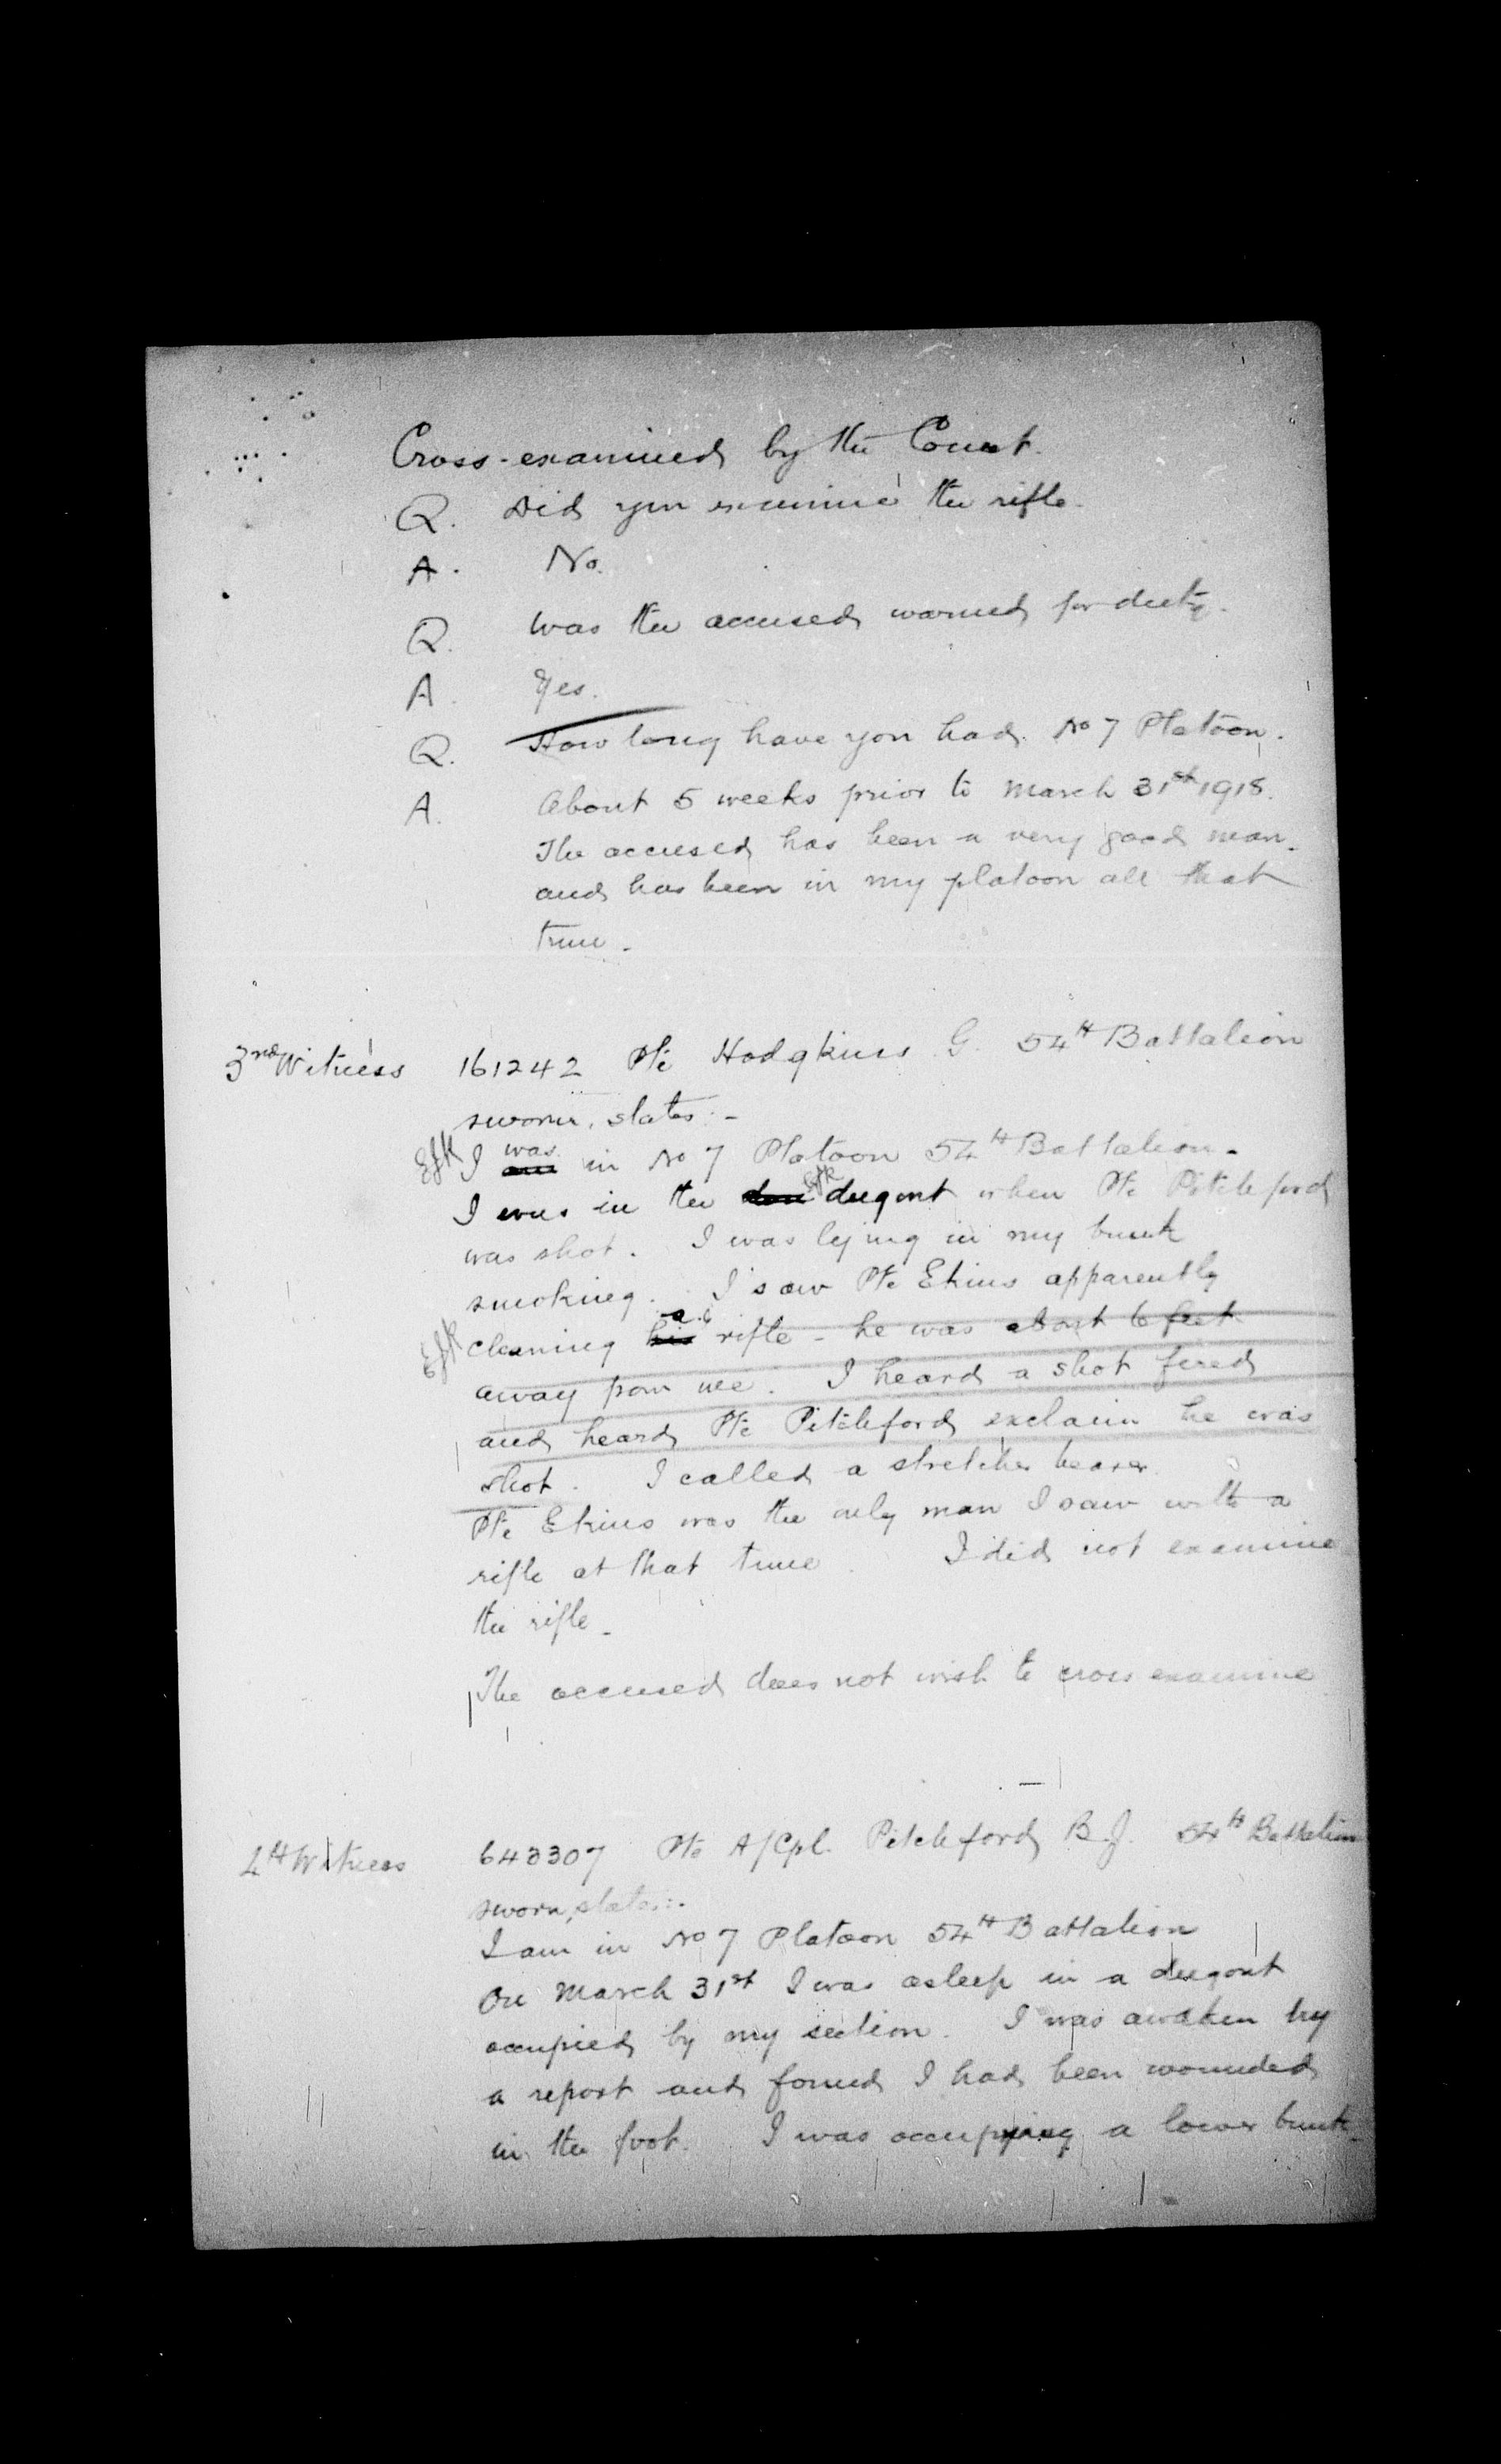 Cross-examined by the Court.
Q. Did you examine the rifle.
A. No.
Q. Was the accused warned for duty.
A. Yes.
Q. How long have you had No 7 Platoon.
A. About 5 weeks prior to March 31st 1918.
The accused has been a very good man.
and has been in my platoon all that
time.
3rd Witness 161242 Pte Hodgkins G. 54th Battalion
sworn, states:-
I was am in No 7 Platoon 54th Battalion.
I was in the dugout when Pte Pitchford
was shot. I was lying in my bunk
smoking. I saw Pte Ekins apparently
cleaning his a rifle - he was about 6 feet
away from me. I heard a shot fired
and heard Pte Pitchford exclaim he was
shot. I called a stretcher bearer.
Pte Ekins was the only man I saw with a
rifle at that time. I did not examine
the rifle.
The accused does not wish to cross examine
4th Witness 643307 Pte A/Cpl. Pitchford B.J. 54th Battalion
sworn, states:-
I am in No 7 Platoon 54th Battalion
On March 31st I was asleep in a dugout
occupied by my section. I was awaken by
a report and found I had been wounded
in the foot. I was occupying a lower bunk.